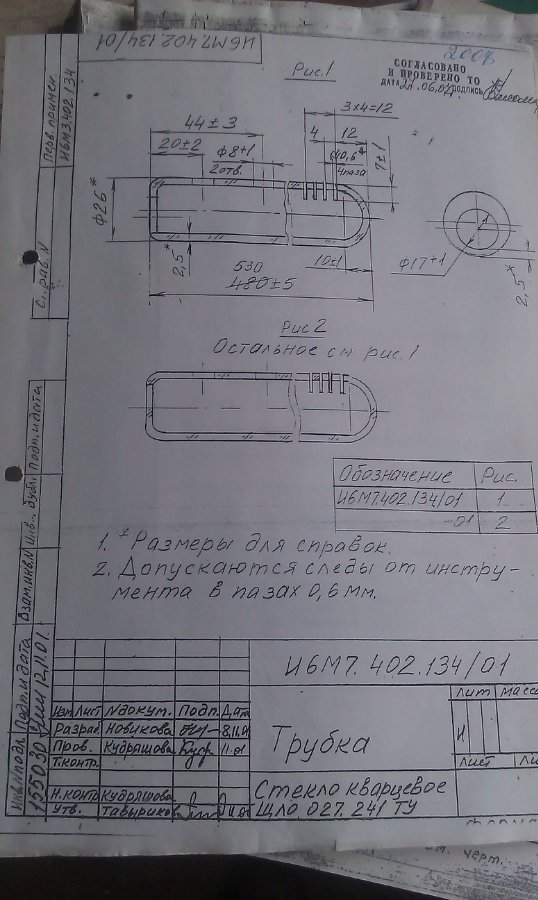 И6М7.402.134/01
2008
СОГЛАСОВАНО
И ПРОВЕРЕНО ТО
ДАТА 21.06.07 ПОДПИСЬ
Рис.1
3х4=12
44±3
4 12
20±2 ф8+1 0,6*
2 отв. 4 паза
7±1
ф26*
2,5*
10±1
ф17±1
2,5*
530
480±5
Рис 2
Остальное см рис.1
Обозначение Рис.
И6М7.402.134/01 1
-01 2
1. *Размеры для справок.
2. Допускаются следы от инстру-
мента в пазах 0,6 мм.
Перв. примен.
И6М3.402.134
Справ. N
Подп. и дата
Инв. N дубл.
Взам. инв. N
Подп. и дата
12.11.01.
Инв. N подл.
155030
И6М7.402.134/01
Лит Масса
Изм Лист N докум. Подп. Дат
Разраб Новикова 8.11.01
Пров. Кудряшова 11.01
Т.контр.
Трубка
И
Лист
Н.контр Кудряшова
Утв.
Стекло кварцевое
ЩЛ0 027.241 ТУ
черт.